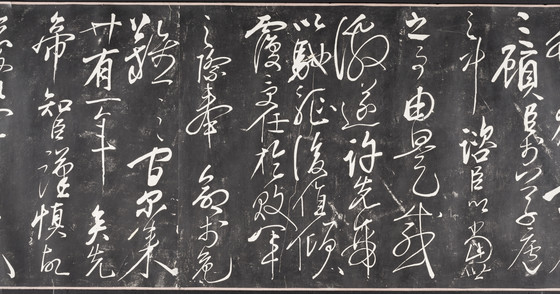 三顧臣於草廬
之中諮臣以當世
之事由是感
激遂許先帝
以驅馳後值傾
覆受任於敗軍
之際奉命於危
難之間爾來
廿有一年矣先
帝知臣謹慎故